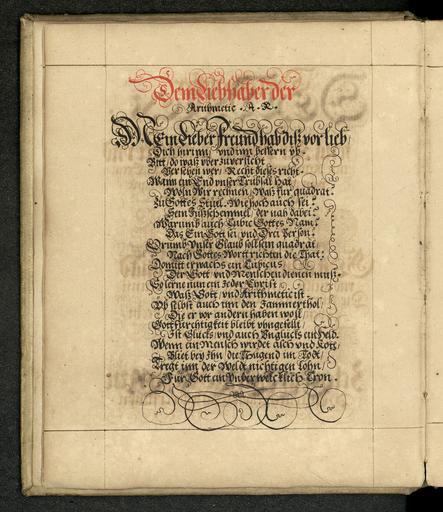 Dem Liebhaber der
Arithmetic . A. K.
Mein Lieber Freund hab diß vor lieb
Dich hirinn, und im bessern üb.
Bitt, do waß wer zuversicht
Versehen wer, Recht dieses richt.
Wann ein End unser Trübsal hat
Wolln Wir rechnen, Waß für quadrat.
Zu Gottes Stuel. Wie hoch auch sei?
Sein Fußschemmel, der nah dabei?
Warumb auch Cubic Gottes Nam?
Das Ein Gott sei und Drei Person.
Drumb Unser Glaub soll sein quadrat
Nach Gottes Wort richtin die That.
Domitt erwachs ein Cubicus
Der Gott und Menschen dienen muß.
So lerne nun ein Jeder Christ
Waß Gott, und Arithmetic ist.
Ob selbst auch inn den Jammerthol
Die er vor andern haben wohl
Gottsfürchtigkeit bleibt ungefellt
Ist Glücks, und auch Unglücks ein Held.
Wenn ein Mensch wirdet asch und Kott
Bliet bey Ihn die Thugend im Todt,
Tregt inn der Weldt nichtigen lohn,
Für Gott ein Unverwelcklich Cron.